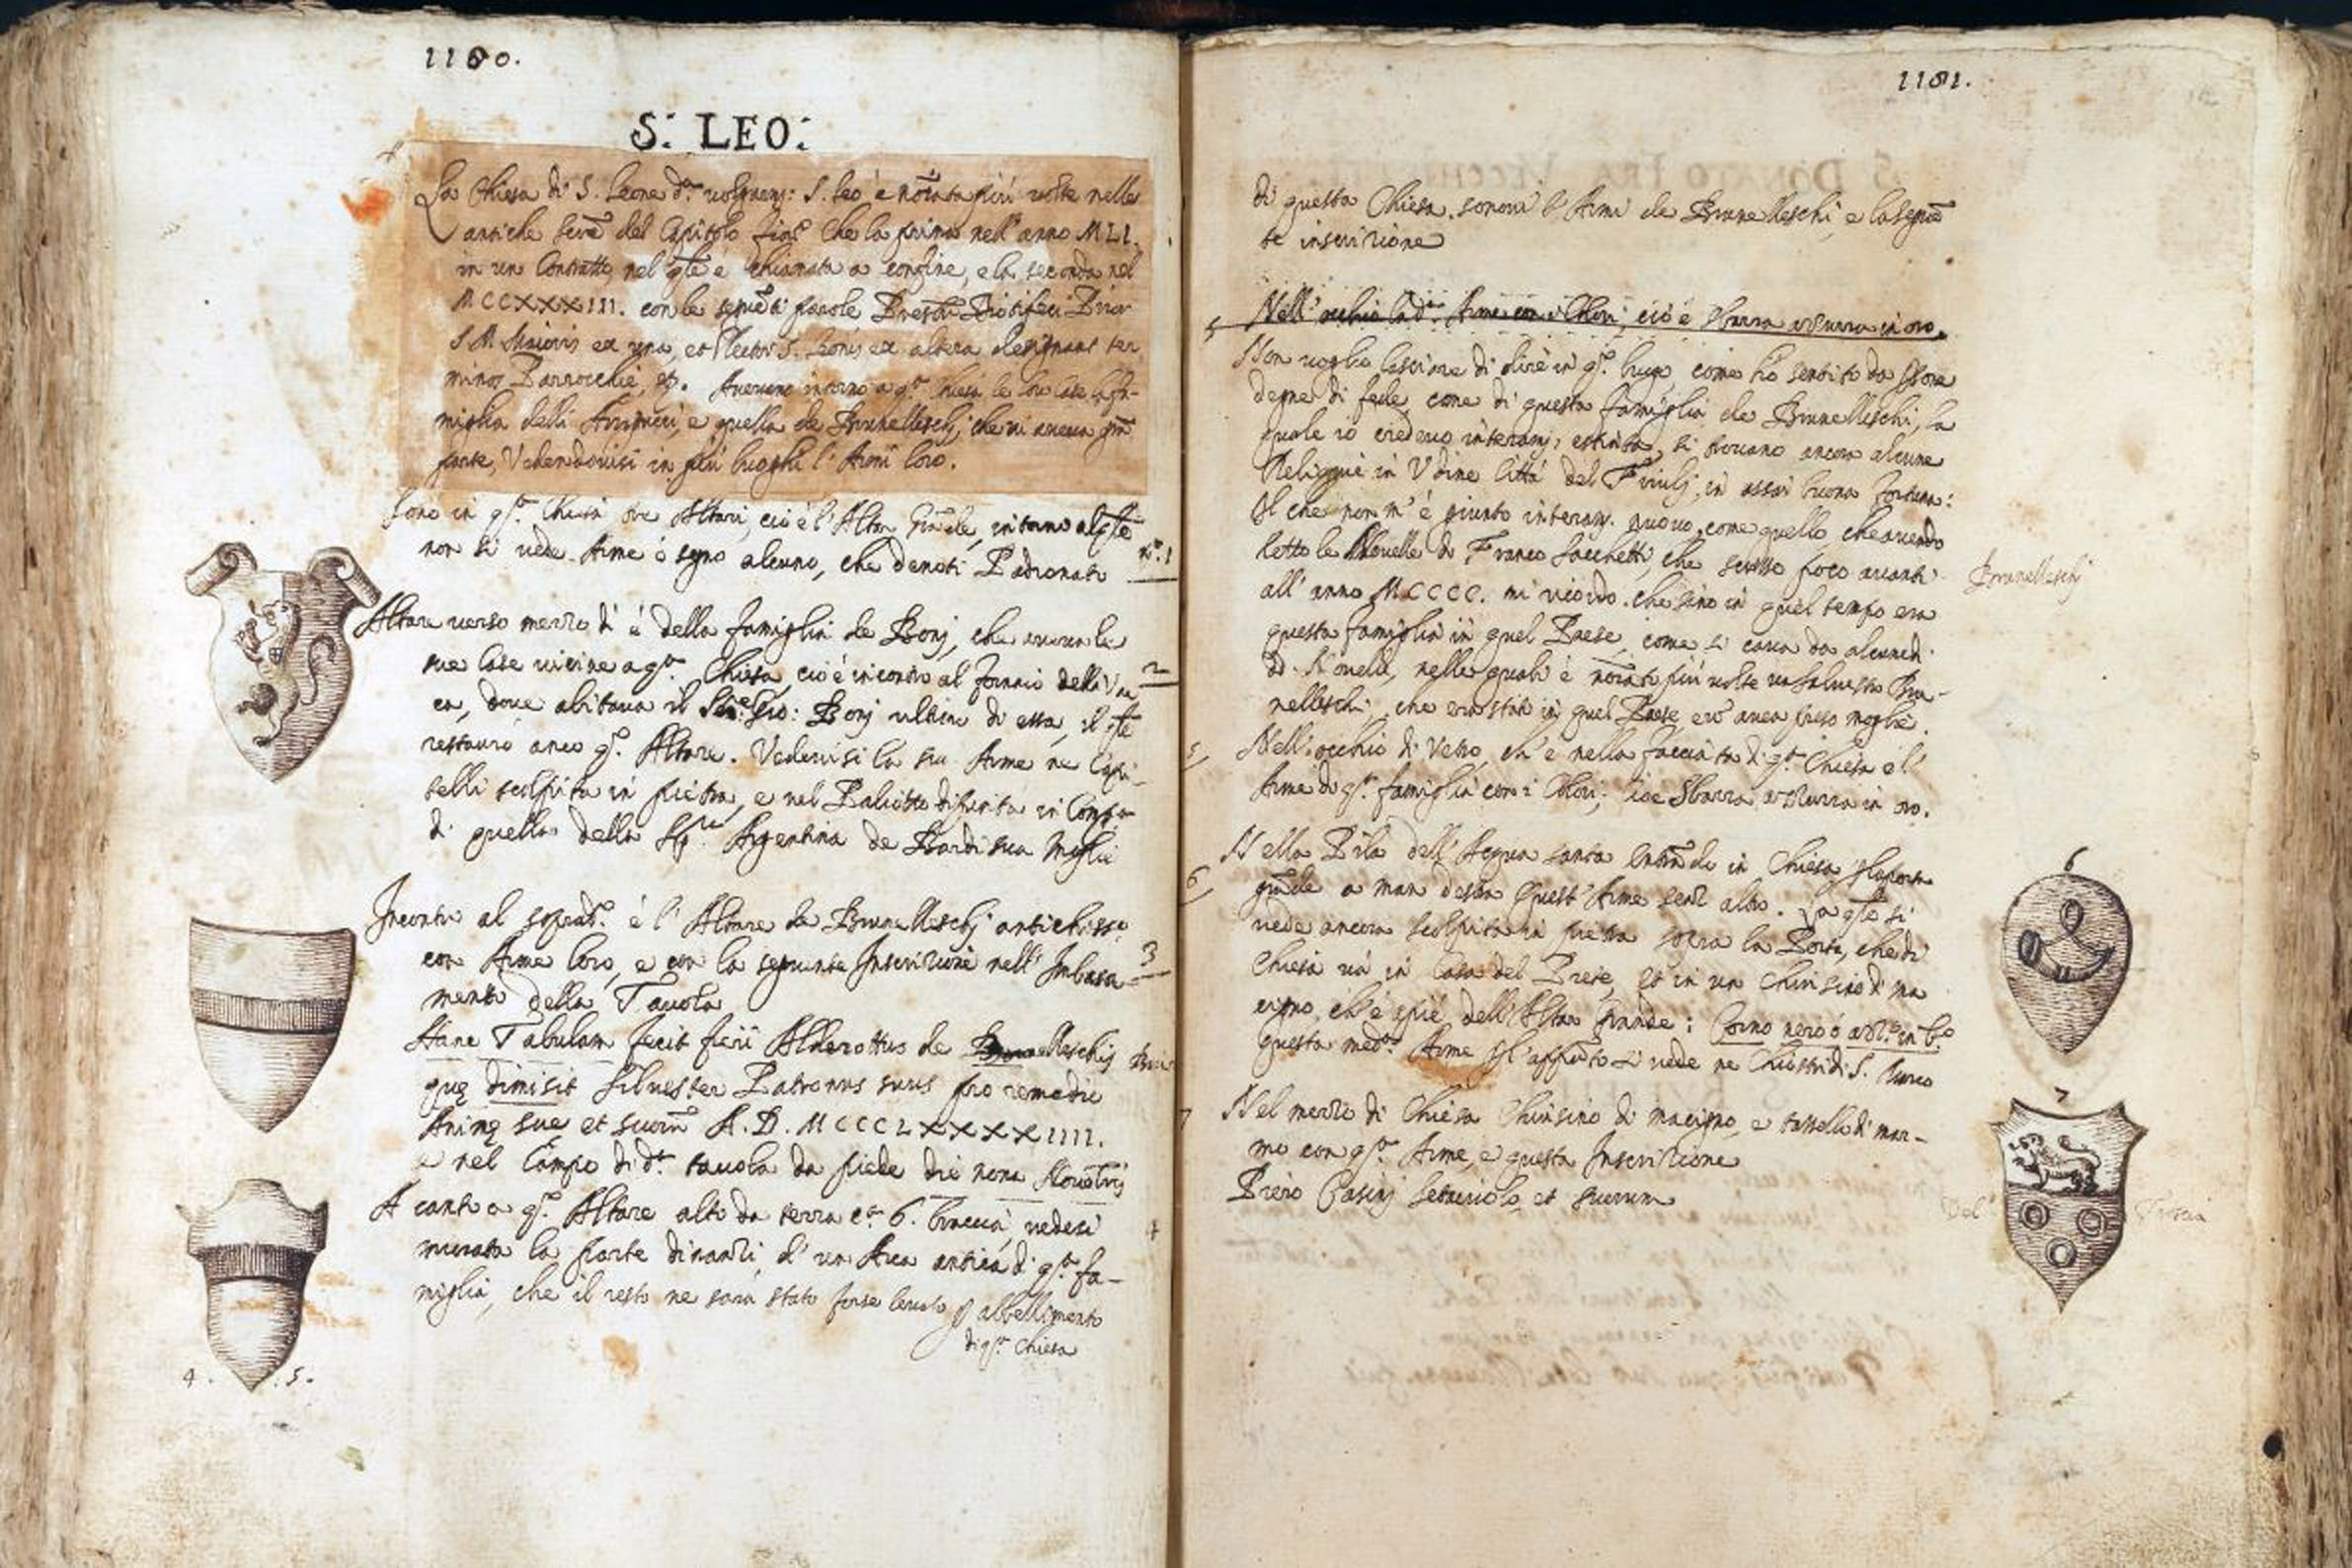 1180.
S: LEO:
La Chiesa di S. Leone d.ª volgarm: S. Leo, è notata più volte nelle
antiche scre del Capitolo fior. Che la prima nell'anno MLI.
in un Contratto, nel qle è chiamata a confine, e la seconda nel
MCCXXXIII. con le seguēti parole Presb. Diotifeci Prior
S. M. Maioris ex una, et Rector S. Leonis ex altera designant ter
minos Parrocchie, etc. Avevano intorno a qª Chiesa le lor case la fa-
miglia delli Arrigucci, e quella de Brunelleschi, che vi aveva grā
parte, Vedendovisi in più luoghi l'Armi loro.
Sono in qª Chiesa tre Altari, cioè l'Altar Grāde, intorno al qle
non si vede Arme ò segno alcuno, che denoti Padronato nº. 1
Altare verso mezzo dì è della famiglia de Bonj, che aveva le
sue Case vicine a qª Chiesa, cioè incontro al fornaio della Va 2
ca, dove abitava il Gio: Bonj ultimo di essa, il qle
restaurò anco qº. Altare. Vedevisi la sua Arme ne Capi-
telli scolpita in pietra, e nel Paliotto dipinta in Compª
di quella della Sigra Argentina de Bardi sua Moglie
Incontro al sopradº. è l'Altare de Brunelleschj antichissº
con Arme loro, e con la seguente Inscrizione nell'Imbasa- 3
mento della Tavola
Hanc Tabulam fecit fieri Alderottus de Brunelleschis
quę dimisit Silvester Patronus suus pro remedio
Animę sue et suorū A. D. MCCCLXXXXIIII.
e nel Campo di dª tavola da piede
A canto a qº. Altare alto da terra cª 6. braccia, vedesi 4
murata la parte dinanzi, d'un Arca antica di qª fa-
miglia, che il resto ne sarà stato forse levato p abbellimento
di qª Chiesa
4. 5.
1181.
di questa Chiesa. sonovi l'Armi de Brunelleschi, e la seguē
te inscrizione
5 Nell'occhio la dª. Arme con i Colori, cioè sbarra azzurra in oro.
Non voglio lasciare di dire in qº. luogo, come hò sentito da psone
degne di fede, come di questa famiglia de Brunelleschi, la
quale io credevo interamᵉ estinta, si trovano ancora alcune
Reliquie in Udine Città del Friulj, in assai buona fortuna:
Il che non m'è giunto interamᵉ. nuovo, come quello che avendo
letto le Novelle di Franco Sacchetti, che scrisse poco avanti
all'anno MCCCC. mi ricordo che sino in quel tempo era
questa famiglia in quel Paese, come si cava da alcune di
dº. Novelle, nelle quali è notato più volte un Salvestro Bru-
nelleschi, che era stato in quel Paese, et v'avea preso moglie.
Brunelleschj
5 Nell'occhio di Vetro, ch'è nella facciata di qª Chiesa è l'
Arme di qª famiglia con i Colori, cioè Sbarra azzurra in oro.
6 Nella Pila dell'Acqua santa entrādo in Chiesa p la porta
grāde a man destra Quest'Arme senz'altro. La qle si
vede ancora scolpita in pietra sopra la Porta, che di
Chiesa và in Casa del Prete, et in un Chiusino di ma
cigno, ch'è a piè dell'Altar Grande: Corno nero ò azzº. in bº
questa medª. Arme p l'appūto si vede ne Chiostri di S. Marco
7 Nel mezzo di Chiesa Chiusino di macigno, e tassello di mar-
mo con qª. Arme, e questa Inscrizione
Piero Casinj Setaiuolo, et suorum
6
7